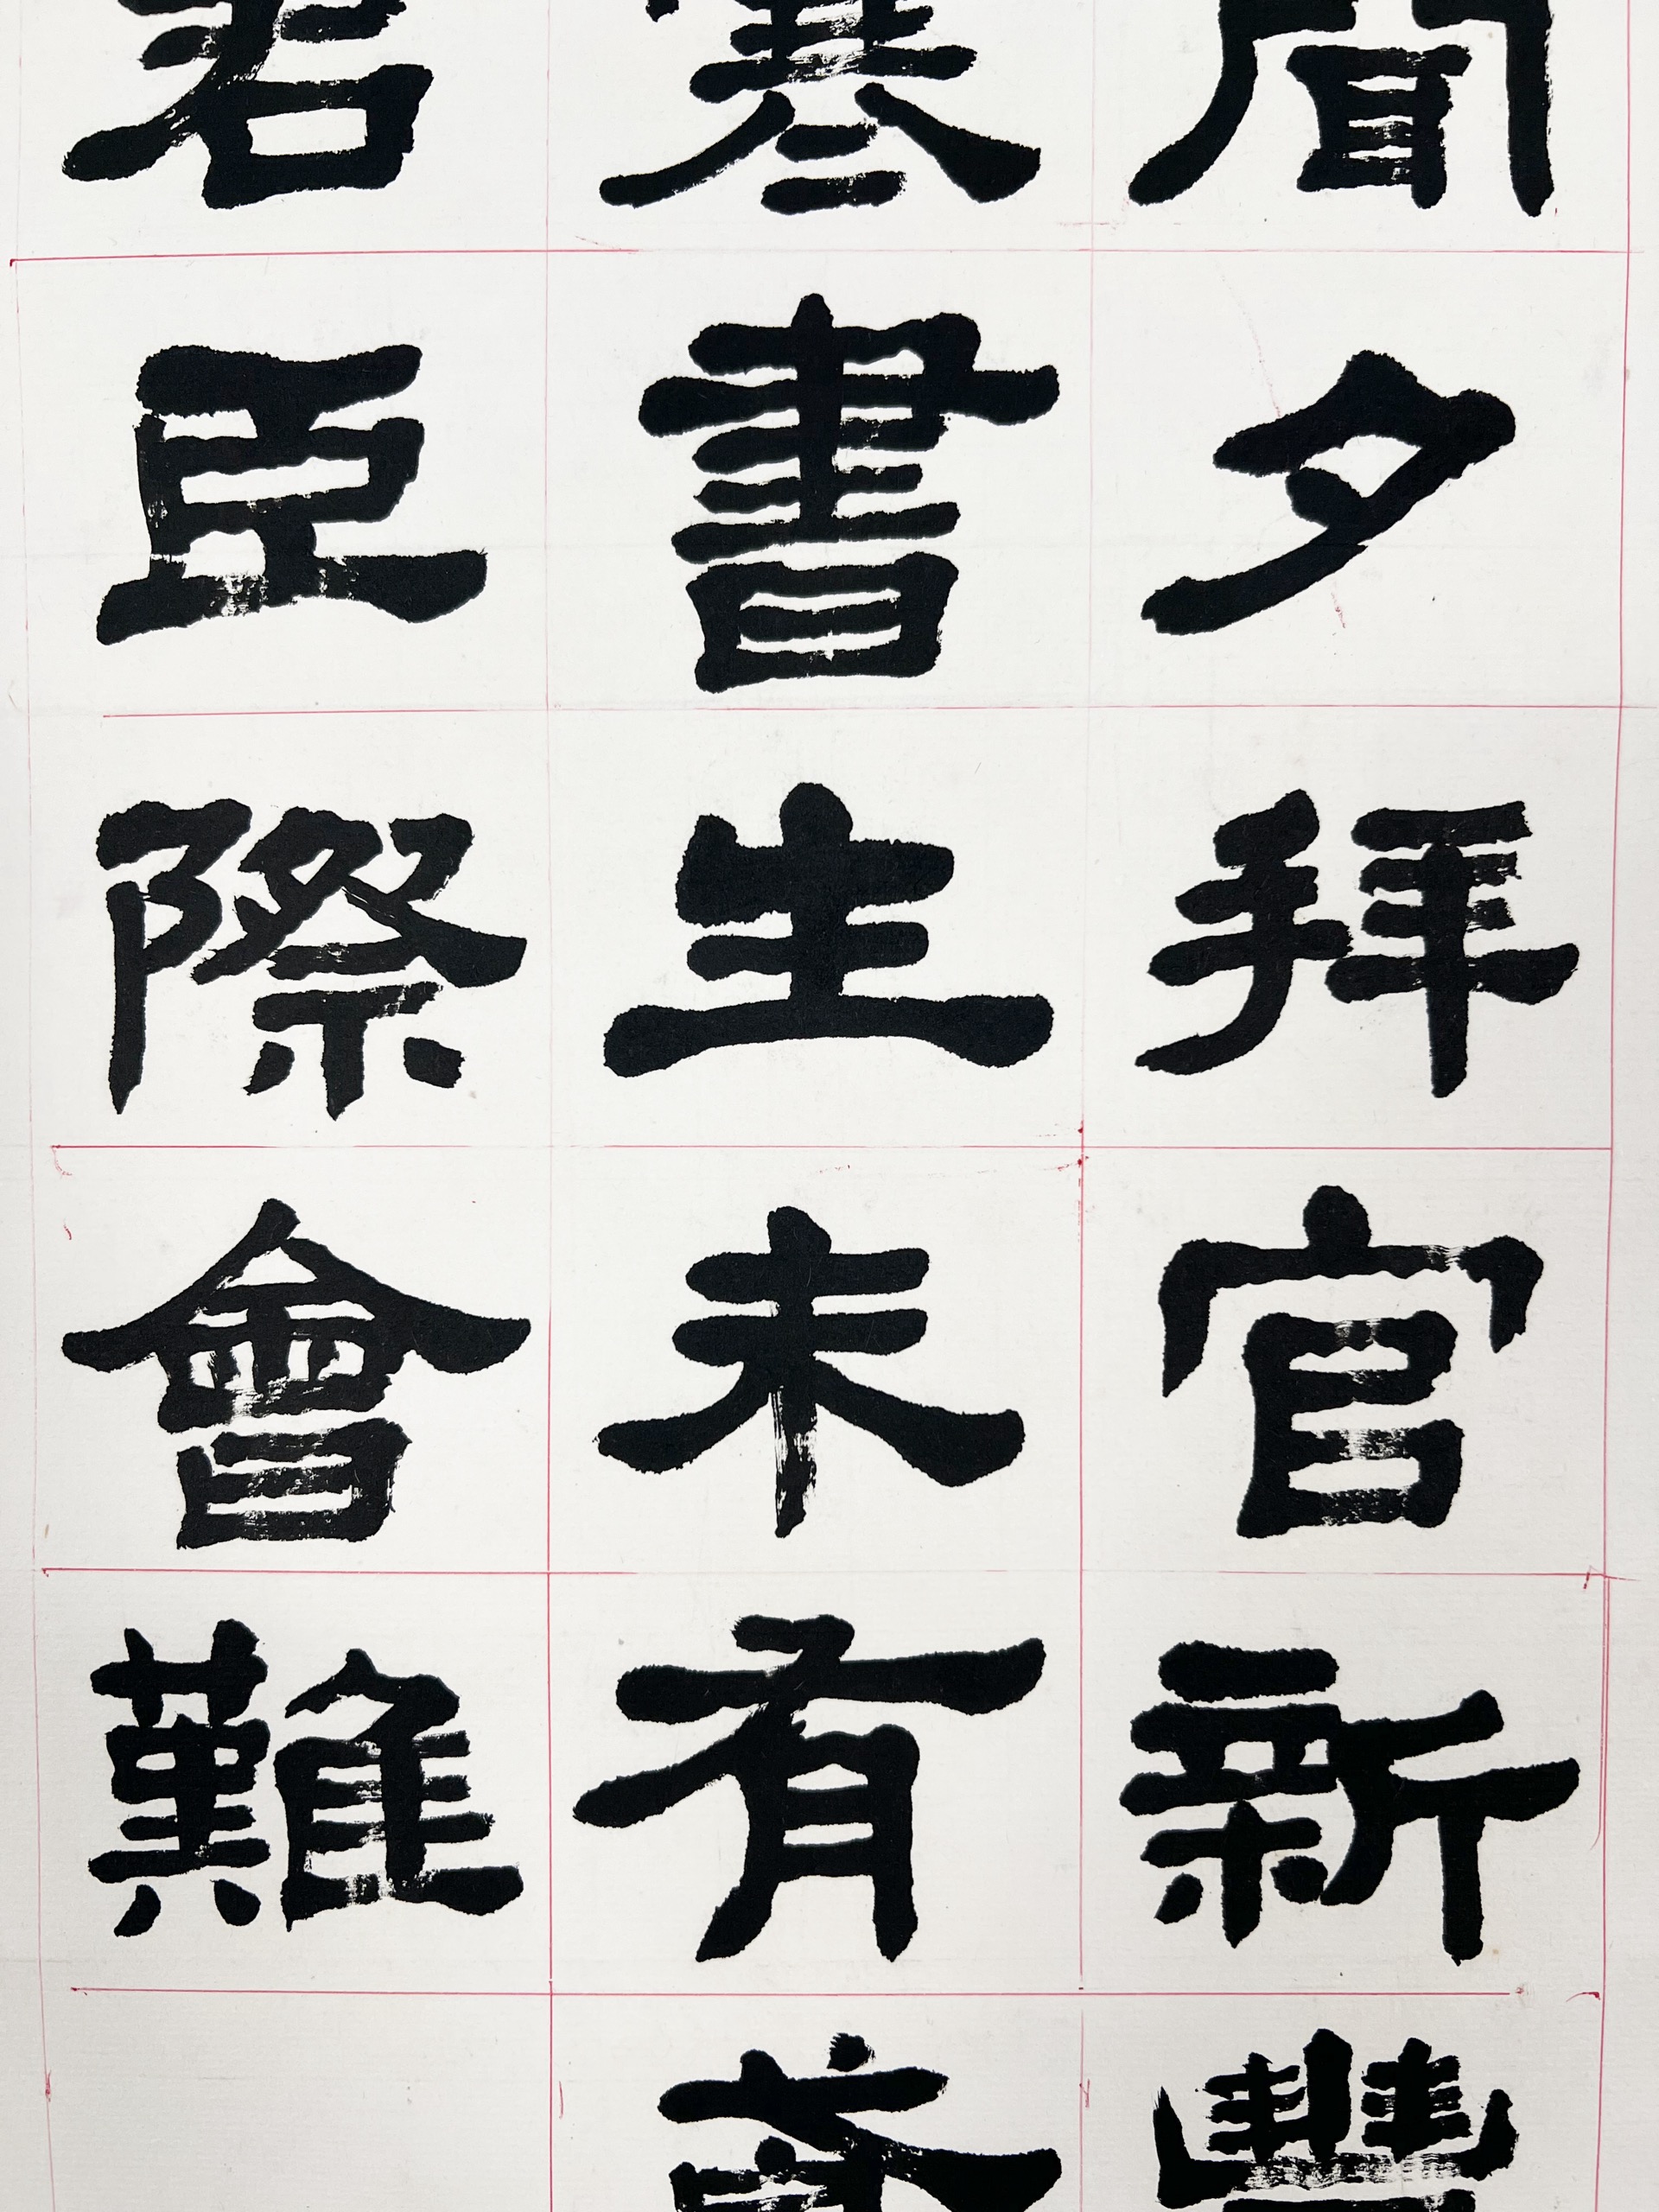 聞夕拜官新豐
寒書生未有
君臣際會難